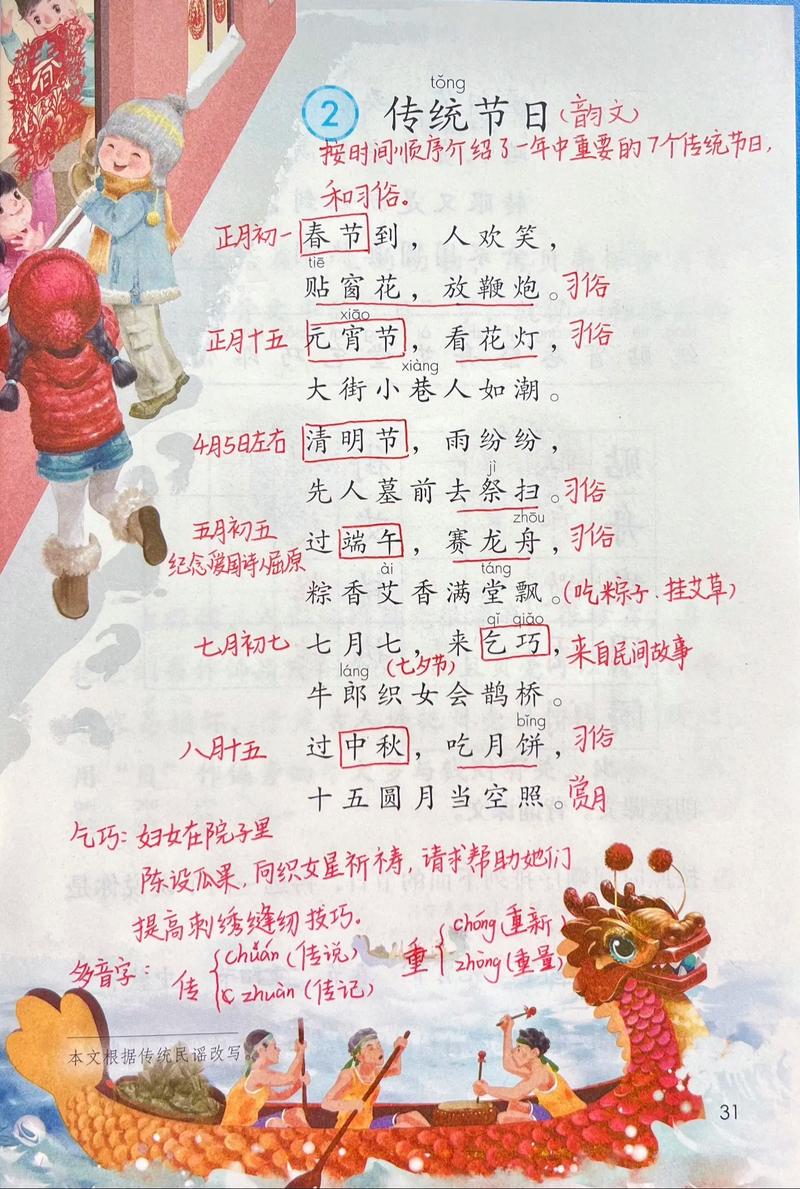 春
tǒng
2 传统节日（韵文）
按时间顺序介绍了一年中重要的7个传统节日,
和习俗。
正月初一 春节到，人欢笑，
tiē
贴窗花，放鞭炮。习俗
xiāo
正月十五 元宵节，看花灯，习俗
xiàng
大街小巷人如潮。
4月5日左右 清明节，雨纷纷，
jì
先人墓前去祭扫。习俗
zhōu
五月初五 过端午，赛龙舟，习俗
纪念爱国诗人屈原
ài táng
粽香艾香满堂飘。(吃粽子.挂艾草)
qǐ qiǎo
七月初七 七月七，来乞巧，来自民间故事
láng (七夕节)
牛郎织女会鹊桥。
bǐng
八月十五 过中秋，吃月饼，习俗
十五圆月当空照。赏月
乞巧: 妇女在院子里
陈设瓜果,向织女星祈祷,请求帮助她们
提高刺绣缝纫技巧.
多音字: 传 chuán (传说) 重 chóng (重新)
zhuàn (传记) zhòng (重量)
本文根据传统民谣改写。
31